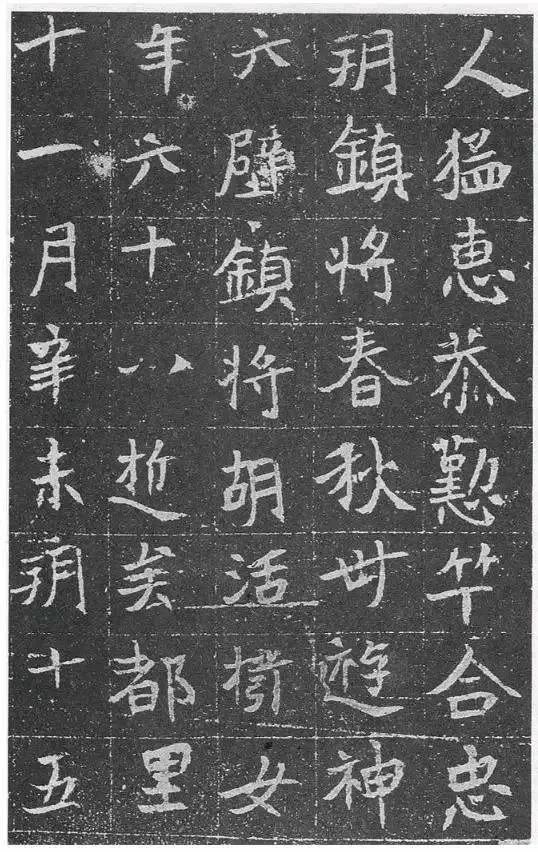 人猛惠恭懃竿合忠
朔鎮将春秋丗遊神
六壁鎮将胡活女
年六十八逝矣都里
十一月辛未朔十五